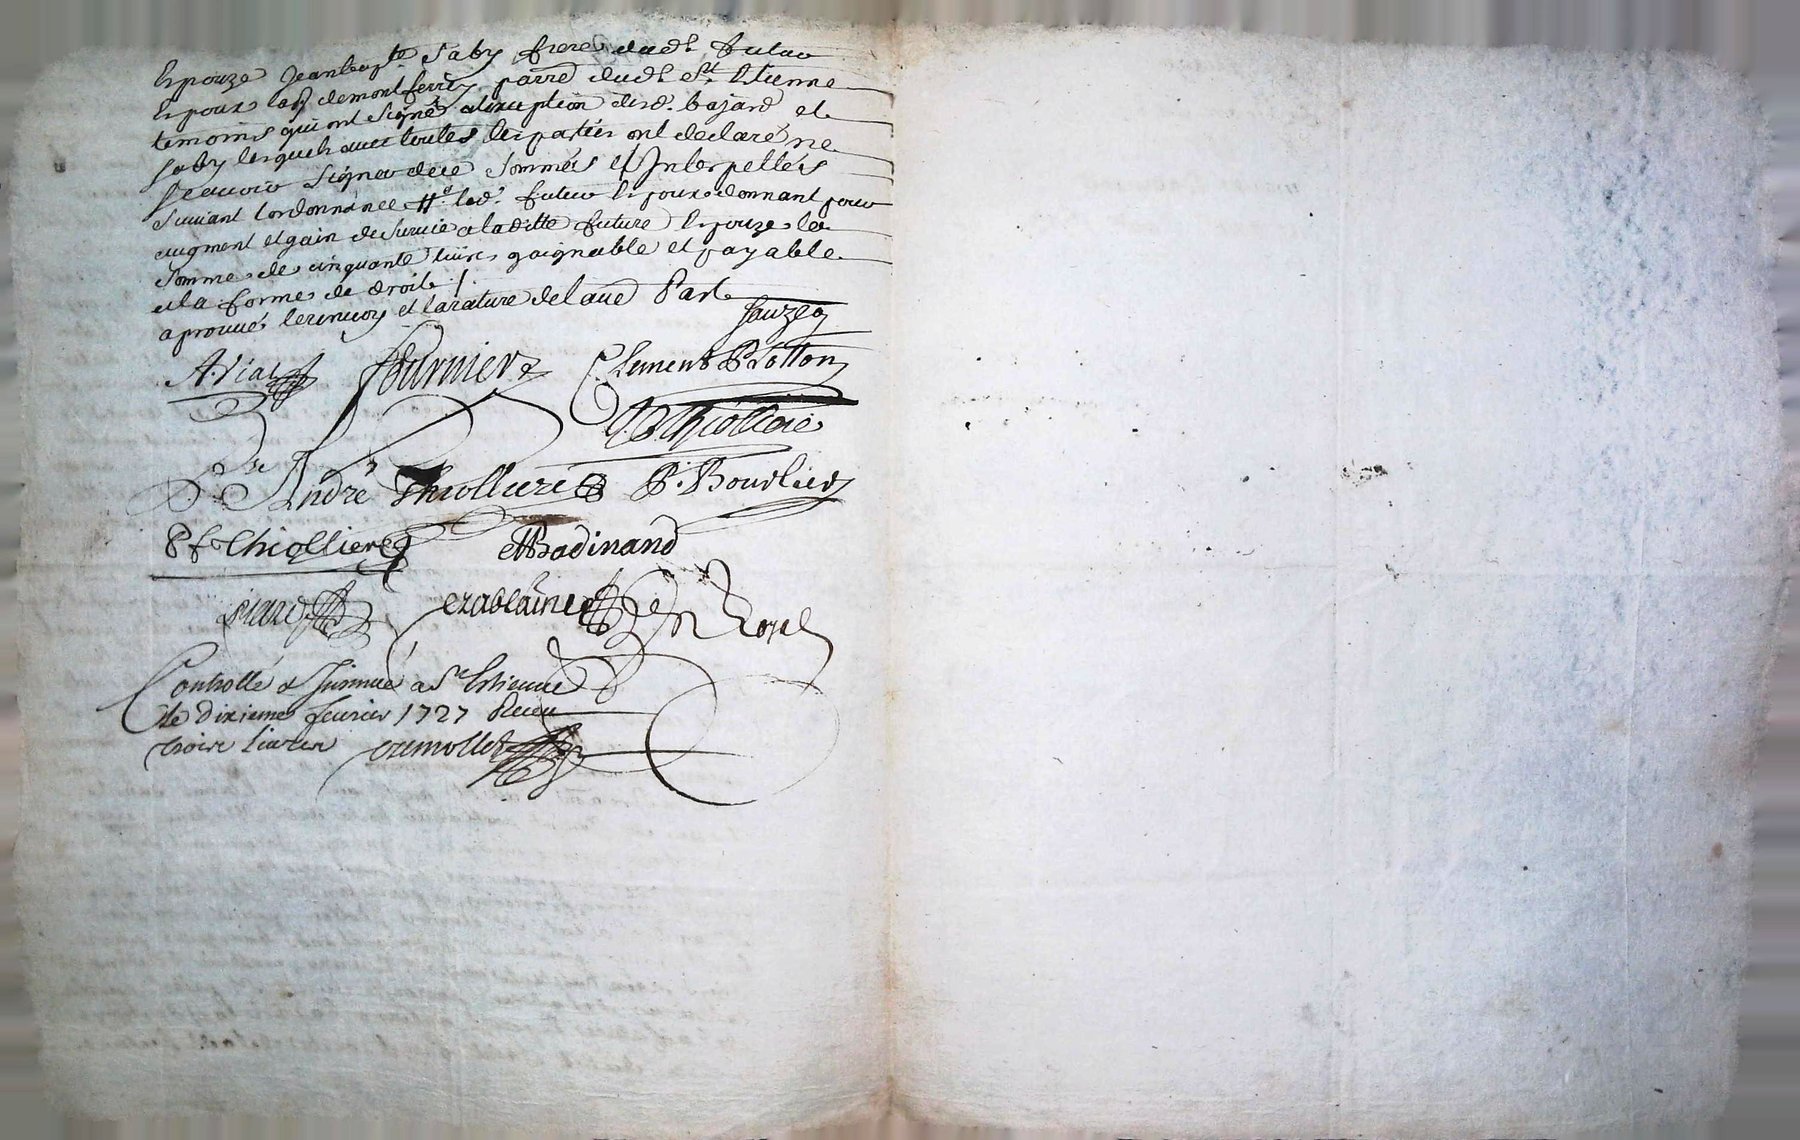 Epouze Jeanbapte. Saby frere dudt. futur
Epoux demontferré parre dudt. St. Etienne
temoins qui ont signé alexeption desd. bajard et
Saby lesquels avec toutes les parties ont declare ne
scavoir signer de ce sommés et Interpellés
suivant lordonnance led. futur Epoux donnant pour
augment et gain de survie a laditte future Epouze la
somme de cinquante livres gaignable et payable
a la forme de droit
aprouvés lerenvoy et larature delaud Part
Jouzeo
A. Vial fournier Clement B Lotton
Thiolliere
André Thiolliere P. Bourlier
Pf. Thiolliere Badinand
picard ezablainie
Controllé & Jnsinué a St Estienne
le dixieme fevrier 1727 Receu
troise livres